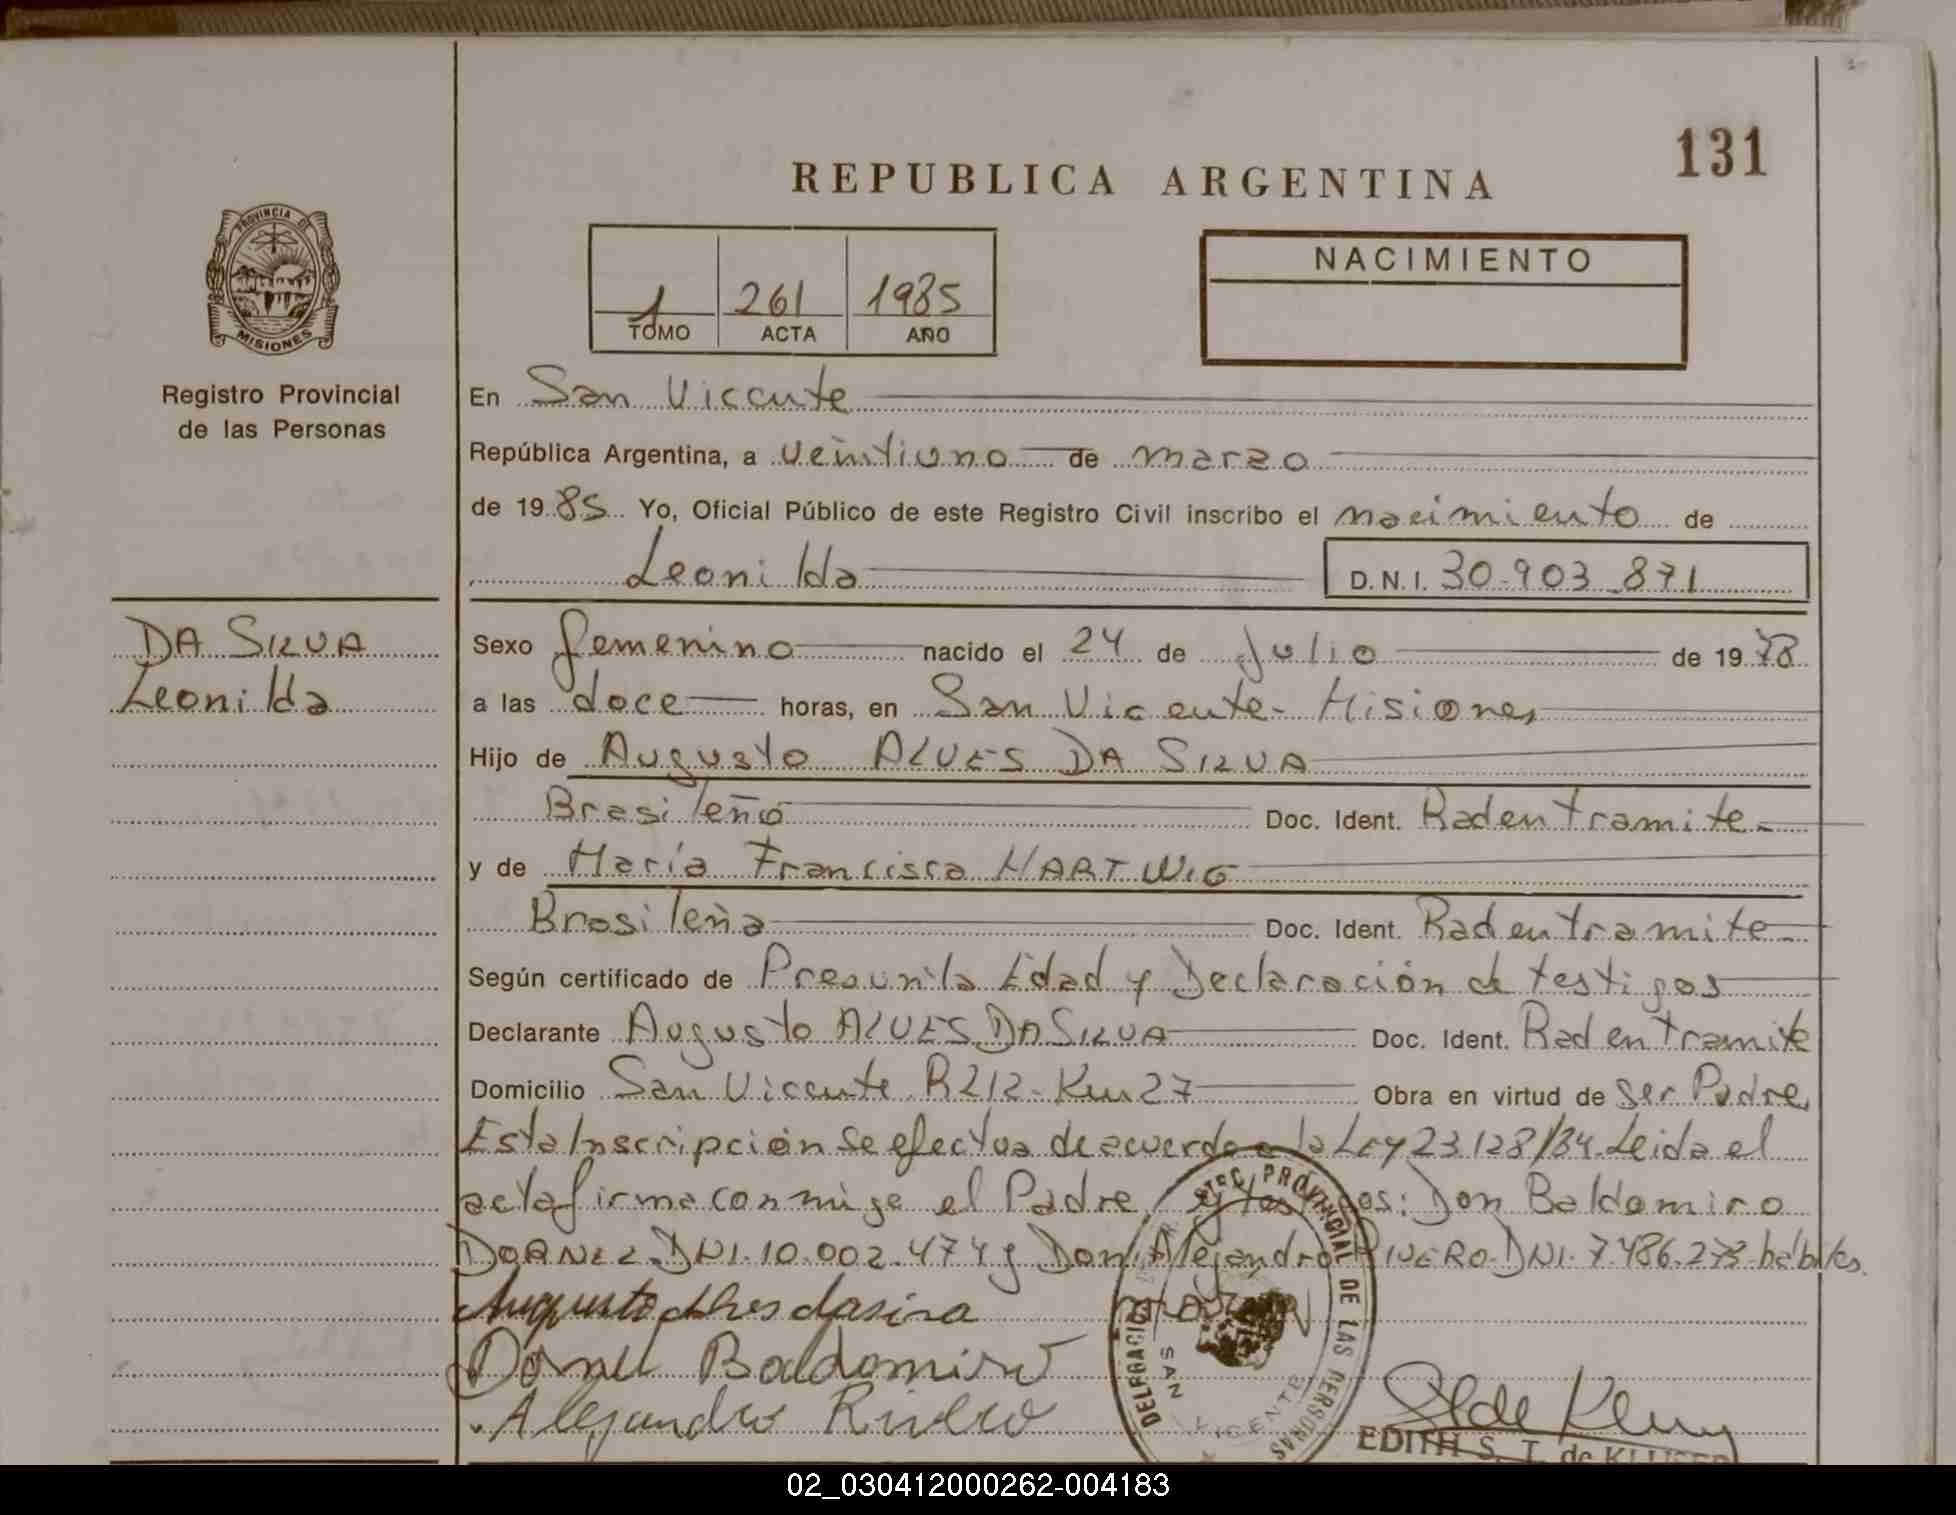 131
REPUBLICA ARGENTINA
PROVINCIA DE
MISIONES
Registro Provincial
de las Personas
1 261 1985
TOMO ACTA AÑO
NACIMIENTO
En San Vicente
República Argentina, a veintiuno de marzo
de 1985 Yo, Oficial Público de este Registro Civil inscribo el nacimiento de
Leonilda D.N.I. 30.903.871
DA SILVA
Leonilda
Sexo femenino nacido el 24 de Julio de 1978
a las doce horas, en San Vicente - Misiones
Hijo de Augusto ALVES DA SILVA
Brasileño Doc. Ident. Rad en tramite -
y de María Francisca HARTWIG
Brasileña Doc. Ident. Rad en tramite -
Según certificado de Presunta Edad y Declaración de testigos
Declarante Augusto ALVES DA SILVA Doc. Ident. Rad en tramite
Domicilio San Vicente R 212 - Km 27 Obra en virtud de ser Padre
Esta Inscripción se efectua de acuerdo a la Ley 23.128/84. Leida el
acta firma conmigo el Padre y testigos: Don Baldomiro
DORNEL DNI. 10.002.474 y Don Alejandro RIVERO DNI. 7.486.273 hábiles.
Augusto Alves da silva
Dornel Baldomiro
Alejandro Rivero
DELEGACION PROVINCIAL DE LAS PERSONAS
SAN VICENTE
EDITH S. T. de
02_030412000262-004183